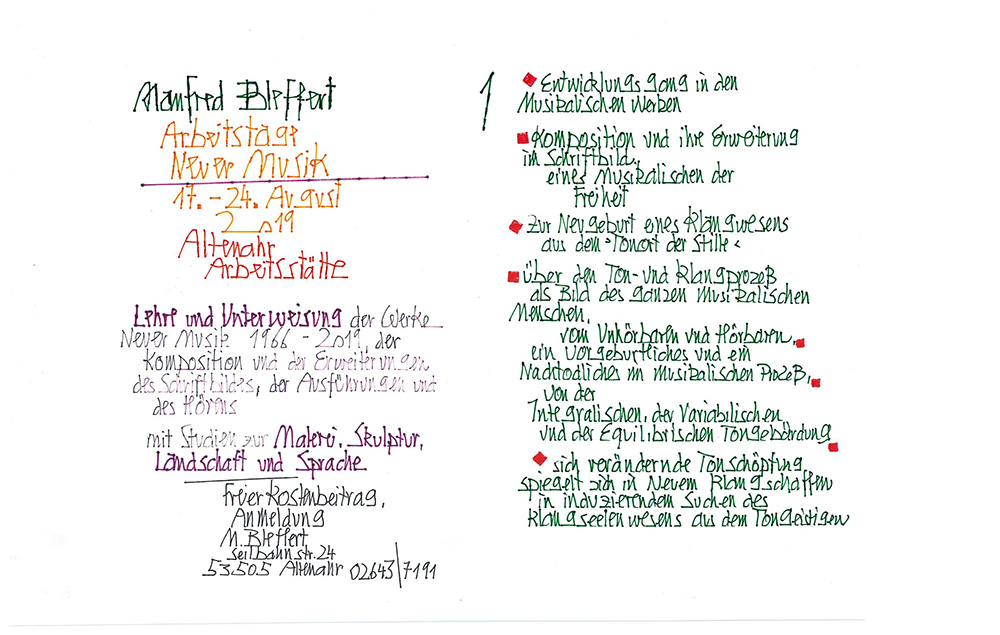 Manfred Bleffert
Arbeitstage
Neuer Musik
17. - 24. August
2019
Altenahr
Arbeitsstätte
Lehre und Unterweisung der Werke
Neuer Musik 1966 - 2019, der
Komposition und der Erweiterungen
des Schriftbildes, der Ausführungen und
des Hörens
mit Studien zur Malerei, Skulptur,
Landschaft und Sprache
freier Kostenbeitrag,
Anmeldung
M. Bleffert
Seilbahnstr. 24
53505 Altenahr 02643/7191
1
Entwicklungsgang in den
Musikalischen Werken
Komposition und ihre Erweiterung
im Schriftbild,
eines Musikalischen der
Freiheit
Zur Neugeburt eines Klangwesens
aus dem >Tonort der Stille<
über den Ton- und Klangprozeß
als Bild des ganzen Musikalischen
Menschen,
vom Unhörbaren und Hörbaren,
ein Vorgeburtliches und ein
Nachtodliches im Musikalischen Prozeß,
von der
Integralischen, der Variabilischen
und der Equilibrischen Tongebärdung
sich verändernde Tonschöpfung,
spiegelt sich in Neuem Klangschaffen
in induzierendem Suchen des
Klangseelenwesens aus dem Tongeistigen